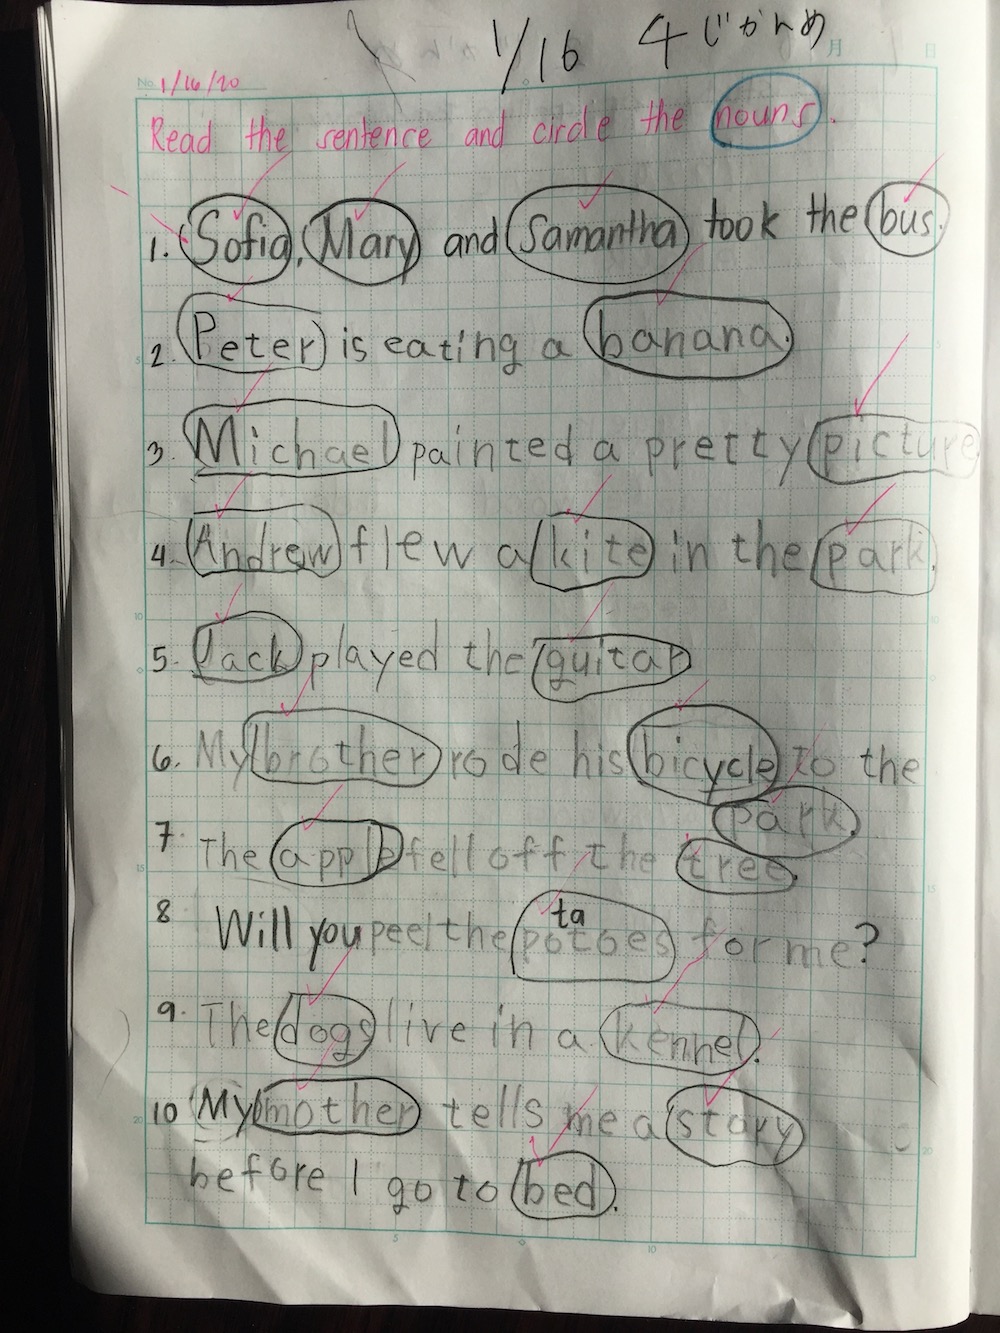 1/16 4じかんめ
月 日
No. 1/16/20
Read the sentence and circle the nouns.
1. Sofia, Mary and Samantha took the bus.
2. Peter is eating a banana.
3. Michael painted a pretty picture
4. Andrew flew a kite in the park.
5. Jack played the guitar
6. My brother rode his bicycle to the
park.
7 The apple fell off the tree.
ta
8 Will you peel the potoes for me?
9. The dogs live in a kennel.
10 My mother tells me a story
before I go to bed.
5 10